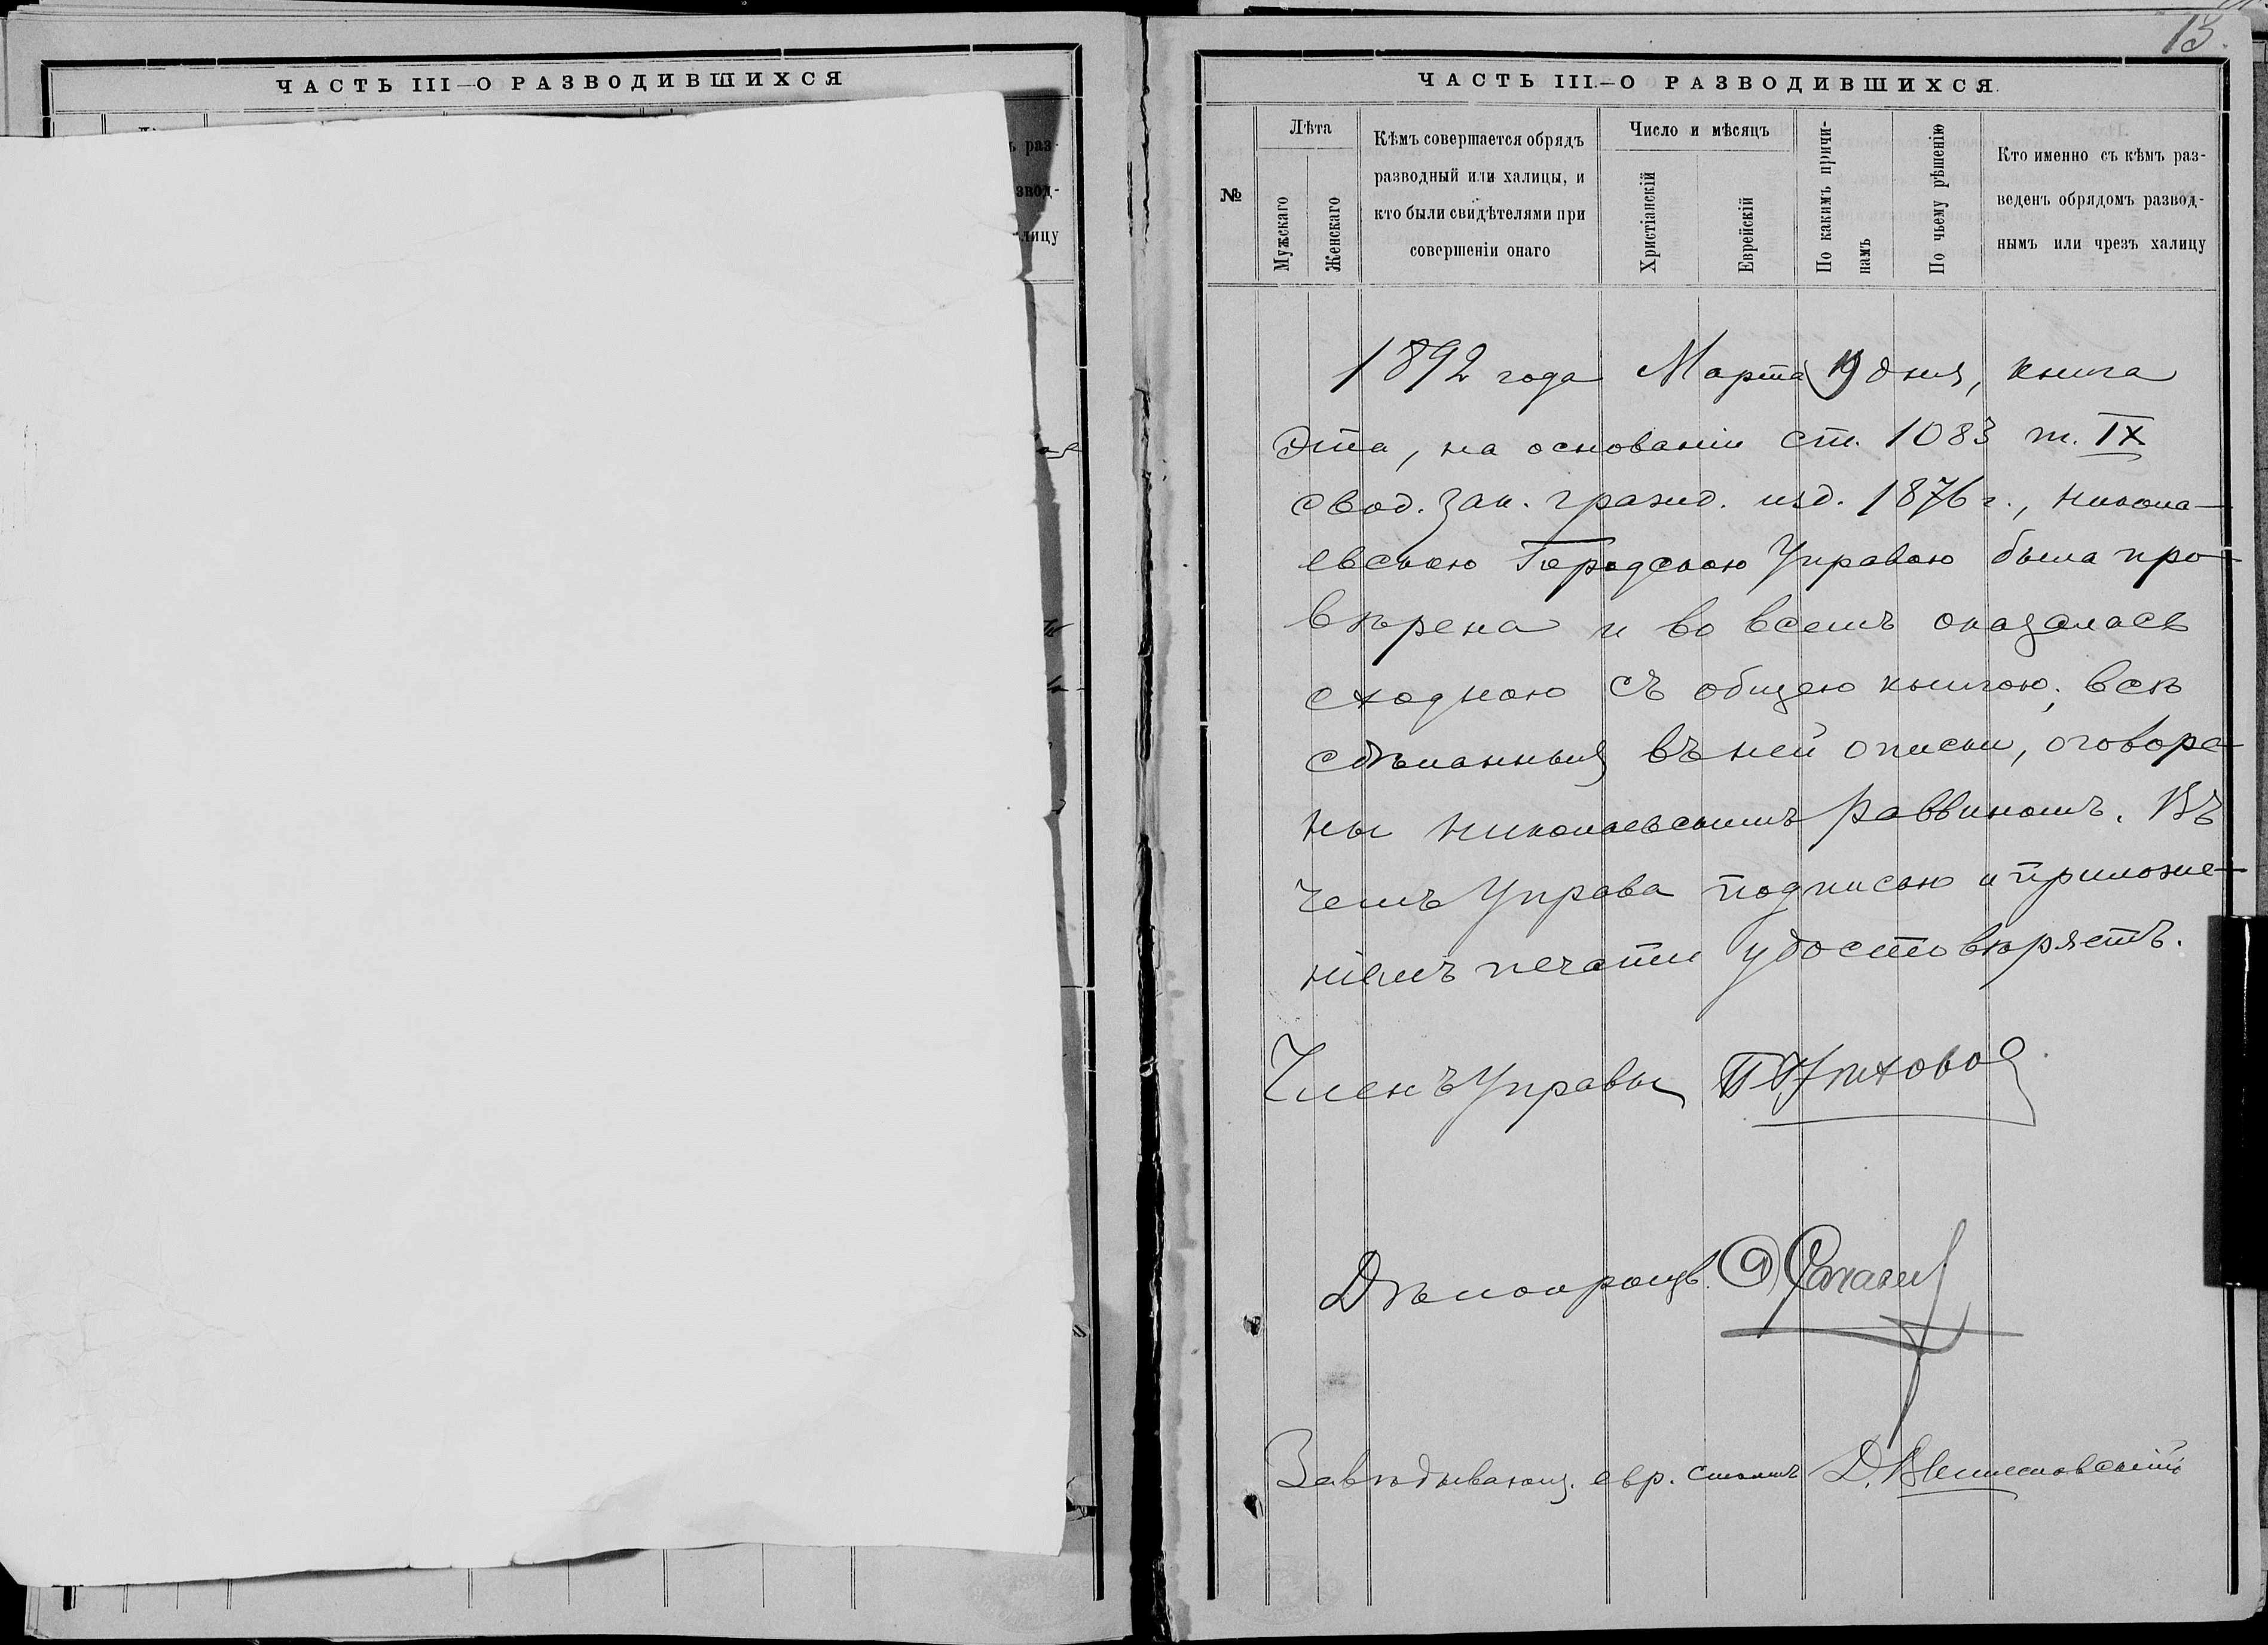 ЧАСТЬ III—О РАЗВОДИВШИХСЯ
ъ раз-
звод-
лицу
13.
ЧАСТЬ III.—О РАЗВОДИВШИХСЯ.
№
Лѣта
Мужскаго
Женскаго
Кѣмъ совершается обрядъ
разводный или халицы, и
кто были свидѣтелями при
совершеніи онаго
Число и мѣсяцъ
Христіанскій
Еврейскій
По какимъ причи-
намъ
По чьему рѣшенію
Кто именно съ кѣмъ раз-
веденъ обрядомъ развод-
нымъ или чрезъ халицу
1892 года Марта 19 дня, книга
эта, на основаніи ст. 1083 т. IX
свод. зак. гражд. изд. 1876 г., Никола-
евскою Городскою Управою была про-
вѣрена и во всемъ оказалась
сходною съ общею книгою; всѣ
сдѣланныя въ ней описки, оговоре-
ны Николаевскимъ Раввиномъ. Въ
чемъ Управа подписью и приложе-
ніемъ печати удостовѣряетъ.
Членъ Управы
Дѣлопроизв.
Завѣдывающ. евр. столомъ Д.